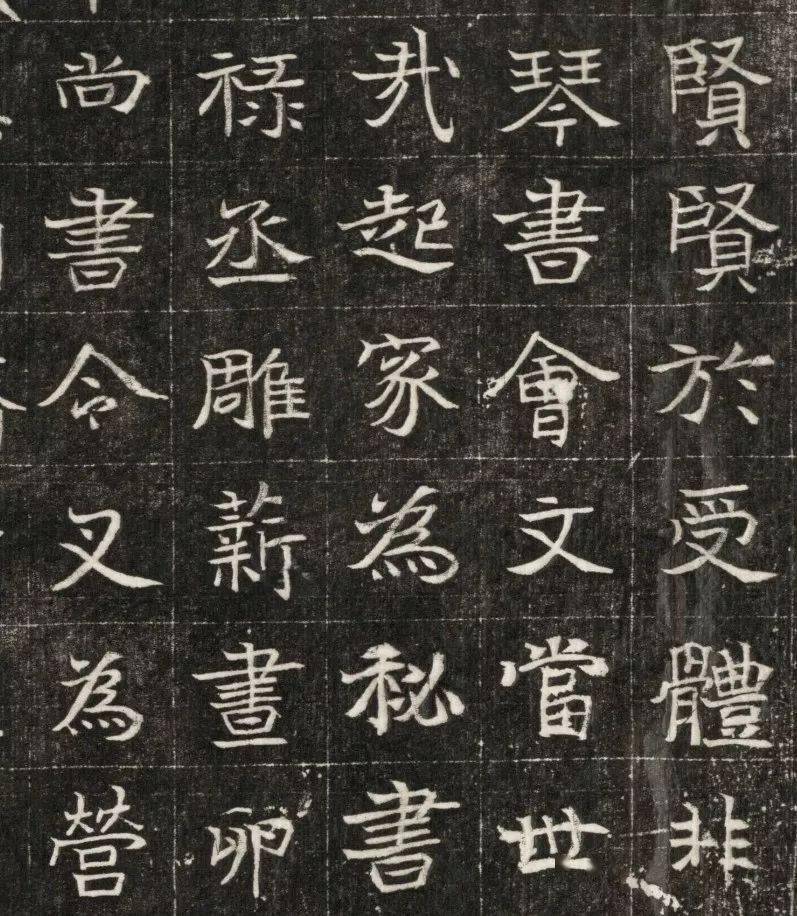 賢賢於受體非
琴書會文當世
哉起家為祕書
祿丞雕薪畫卵
尚書令又為營